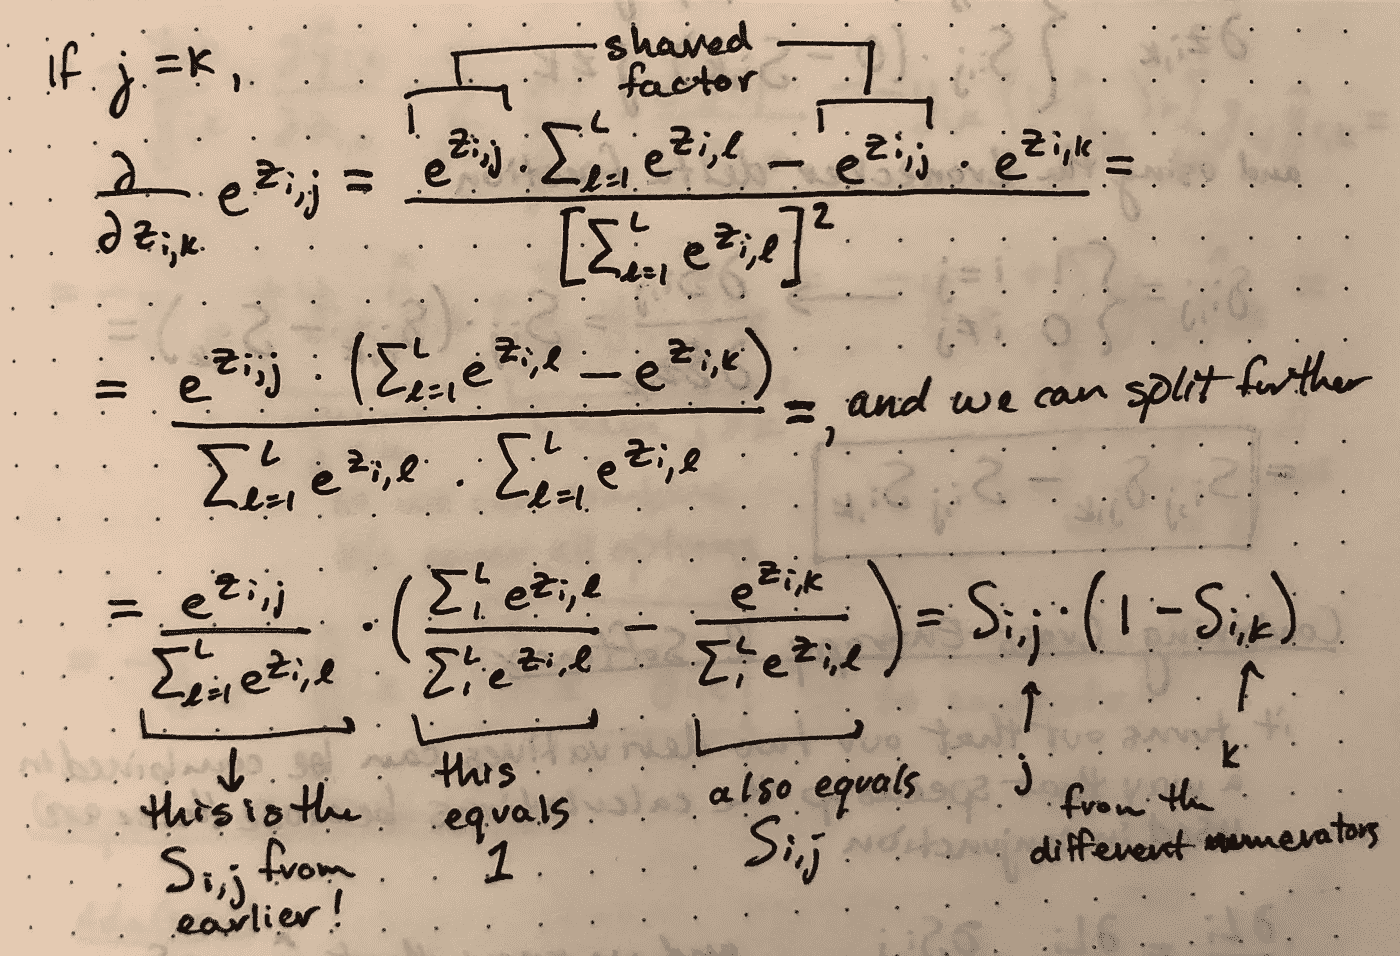 if j = k,
shared
factor
∂/∂z_{i,k} e^{z_{i,j}} = (e^{z_{i,j}} · Σ_{l=1}^{L} e^{z_{i,l}} − e^{z_{i,j}} · e^{z_{i,k}}) / [Σ_{l=1}^{L} e^{z_{i,l}}]^2 =
= (e^{z_{i,j}} · (Σ_{l=1}^{L} e^{z_{i,l}} − e^{z_{i,k}})) / (Σ_{l=1}^{L} e^{z_{i,l}} · Σ_{l=1}^{L} e^{z_{i,l}}) =, and we can split further
= e^{z_{i,j}} / Σ_{l=1}^{L} e^{z_{i,l}} · (Σ_{1}^{L} e^{z_{i,l}} / Σ_{1}^{L} e^{z_{i,l}} − e^{z_{i,k}} / Σ_{1}^{L} e^{z_{i,l}}) = S_{i,j} · (1 − S_{i,k})
↓ this is the
S_{i,j} from
earlier!
this
equals
1
also equals
S_{i,j}
↑ ↑
j k
from the
different numerators